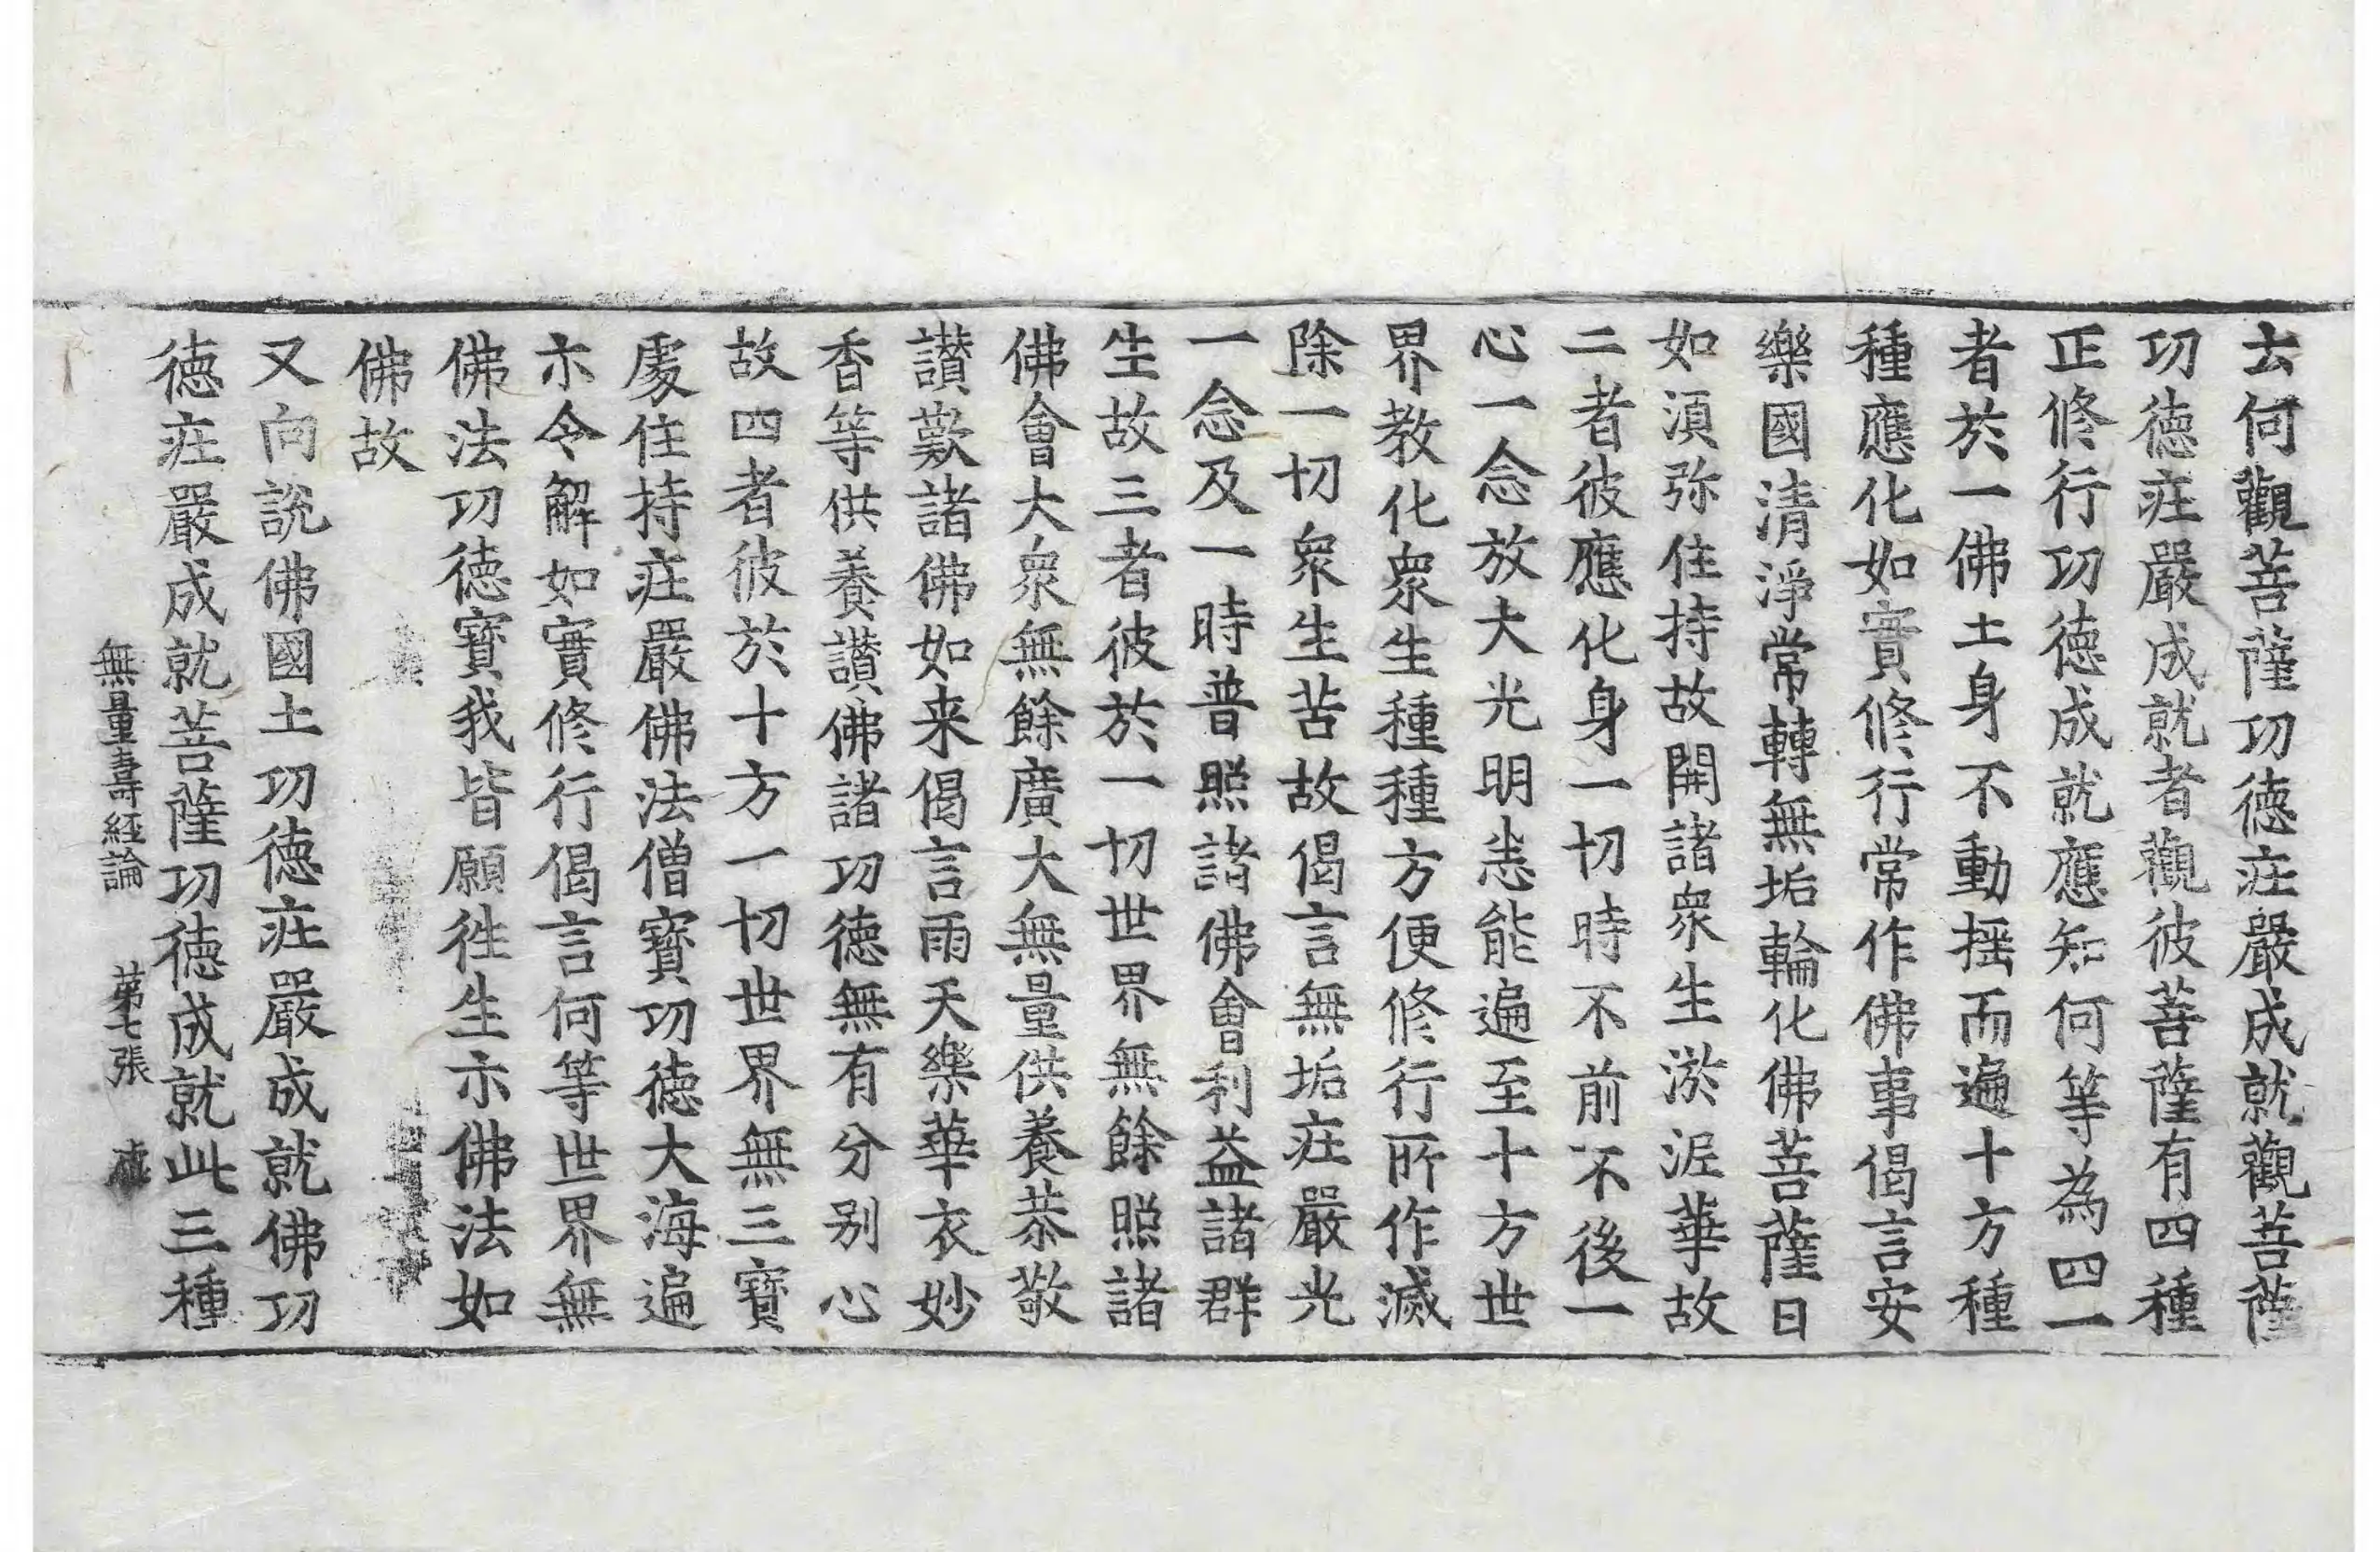 云何觀菩薩功德疘嚴成就觀菩薩
功德疘嚴成就者觀彼菩薩有四種
正修行功德成就應知何等為四一
者於一佛土身不動揺而遍十方種
種應化如實修行常作佛事偈言安
樂國清淨常轉無垢輪化佛菩薩日
如湏弥住持故開諸衆生淤泥華故
二者彼應化身一切時不前不後一
心一念放大光明悉能遍至十方世
界教化衆生種種方便修行所作滅
除一切衆生苦故偈言無垢疘嚴光
一念及一時普照諸佛會利益諸群
生故三者彼於一切世界無餘照諸
佛會大衆無餘廣大無量供養恭敬
讃歎諸佛如来偈言雨天樂華衣妙
香等供養讃佛諸功德無有分别心
故四者彼於十方一切世界無三寶
處住持疘嚴佛法僧寶功德大海遍
示令解如實修行偈言何等世界無
佛法功德寶我皆願徃生示佛法如
佛故
又向說佛國土功德疘嚴成就佛功
德疘嚴成就菩薩功德成就此三種
無量壽経論 苐七張